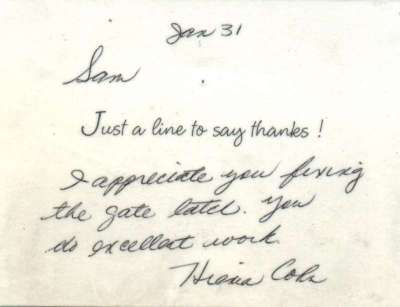 Jan 31
Sam
Just a line to say thanks!
I appreciate you fixing
the gate latch. You
do excellent work.